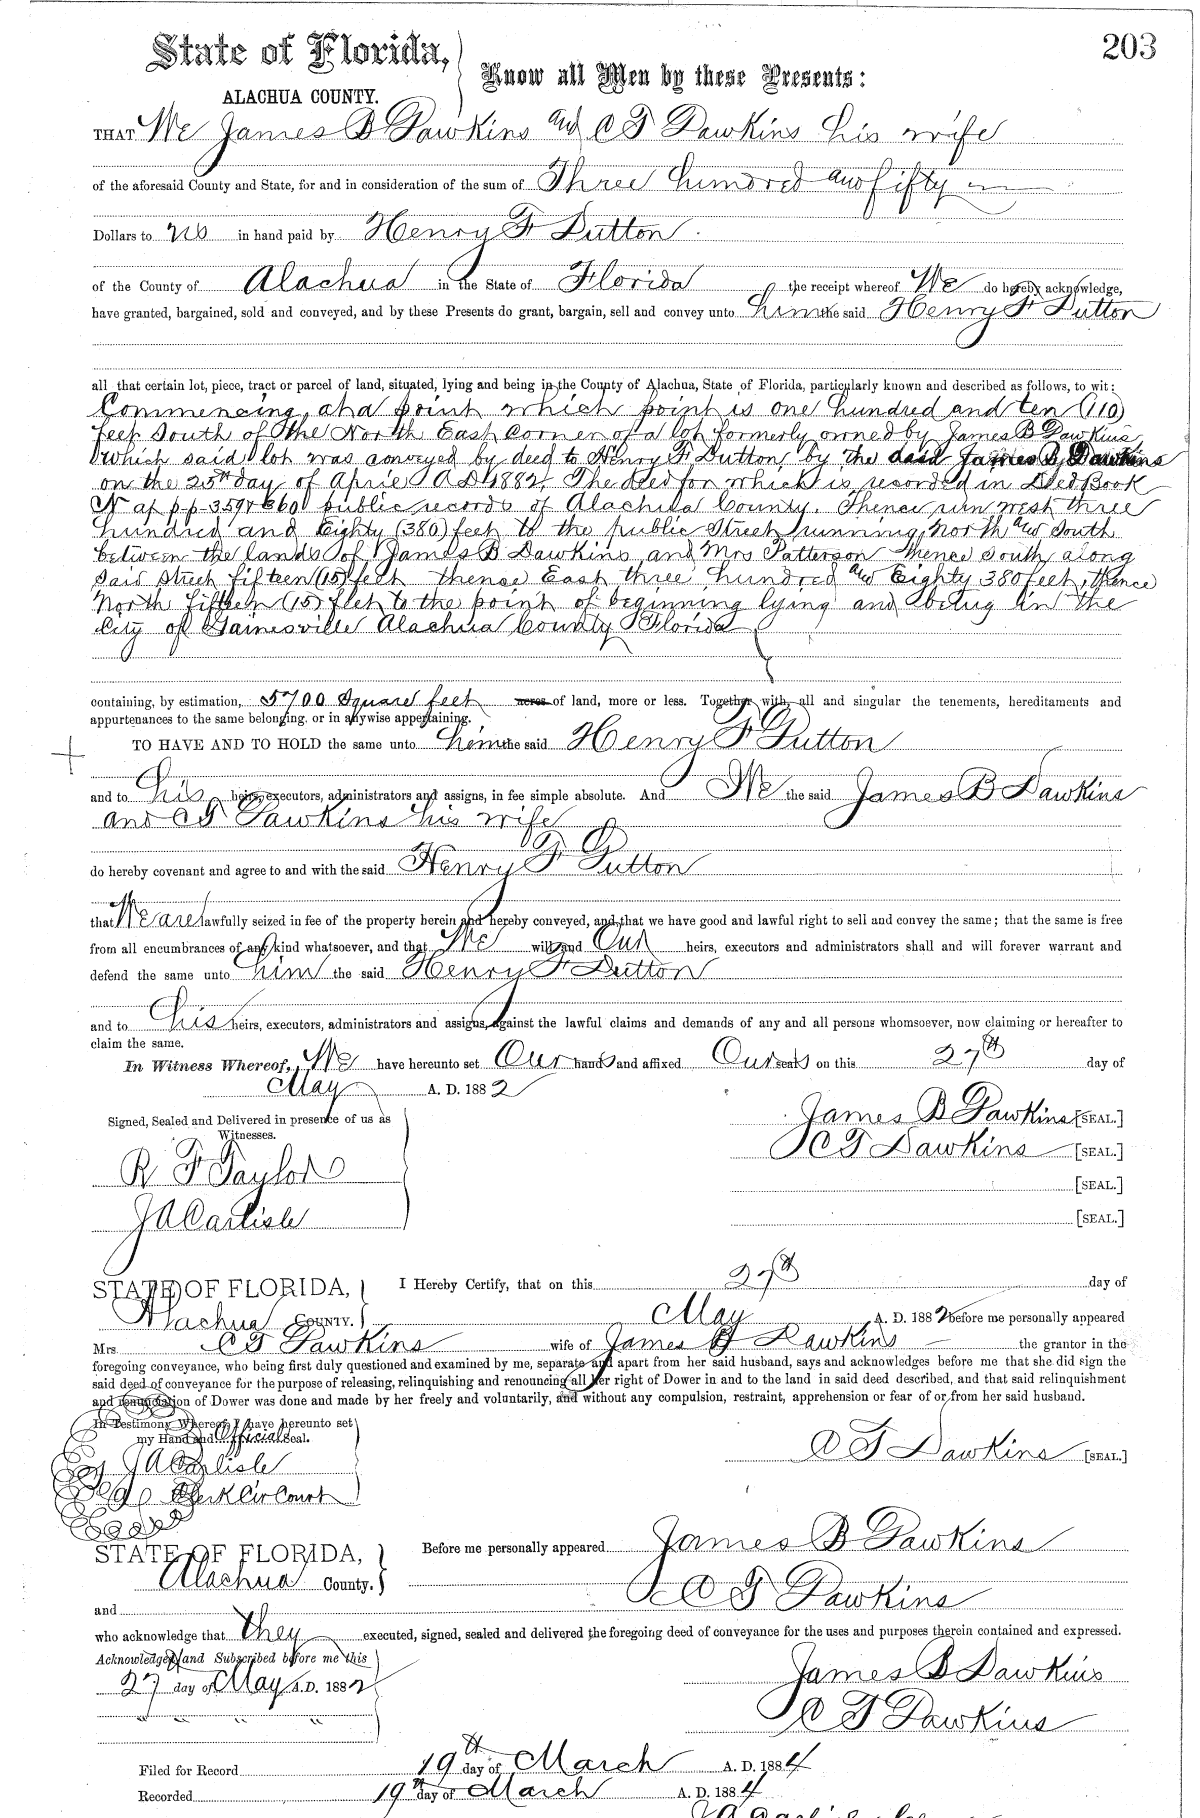 203
State of Florida,
Know all Men by these Presents:
ALACHUA COUNTY.
THAT We James B Dawkins and C T Dawkins his wife
of the aforesaid County and State, for and in consideration of the sum of Three hundred and fifty
Dollars to us in hand paid by Henry F Dutton
of the County of Alachua in the State of Florida the receipt whereof We do hereby acknowledge,
have granted, bargained, sold and conveyed, and by these Presents do grant, bargain, sell and convey unto him the said Henry F Dutton
all that certain lot, piece, tract or parcel of land, situated, lying and being in the County of Alachua, State of Florida, particularly known and described as follows, to wit:
Commencing at a point which point is one hundred and ten (110)
feet South of the North East corner of a lot formerly owned by James B Dawkins,
which said lot was conveyed by deed to Henry F Dutton, by the said James B Dawkins
on the 25th day of April A D 1882, The deed for which is recorded in Deed Book
N at pp 359 & 360 public records of Alachua County. Thence run west three
hundred and Eighty (380) feet to the public Street running North and South
between the lands of James B Dawkins and Mrs Patterson thence south along
said street fifteen (15) feet thence East three hundred and Eighty 380 feet, thence
North fifteen (15) feet to the point of beginning lying and being in the
City of Gainesville Alachua County Florida
containing, by estimation, 5700 Square feet acres of land, more or less. Together with all and singular the tenements, hereditaments and
appurtenances to the same belonging, or in anywise appertaining.
TO HAVE AND TO HOLD the same unto him the said Henry F Dutton
and to his heirs, executors, administrators and assigns, in fee simple absolute. And We the said James B Dawkins
and C T Dawkins his wife
do hereby covenant and agree to and with the said Henry F Dutton
that We are lawfully seized in fee of the property herein and hereby conveyed, and that we have good and lawful right to sell and convey the same; that the same is free
from all encumbrances of any kind whatsoever, and that We will and Our heirs, executors and administrators shall and will forever warrant and
defend the same unto him the said Henry F Dutton
and to his heirs, executors, administrators and assigns, against the lawful claims and demands of any and all persons whomsoever, now claiming or hereafter to
claim the same.
In Witness Whereof, We have hereunto set Our hands and affixed Our seals on this 27th day of
May A. D. 1882
Signed, Sealed and Delivered in presence of us as
Witnesses.
James B Dawkins [SEAL.]
C T Dawkins [SEAL.]
R F Taylor
[SEAL.]
J A Carlisle
[SEAL.]
STATE OF FLORIDA, I Hereby Certify, that on this 27th day of
Alachua COUNTY. May A. D. 1882 before me personally appeared
Mrs. C T Dawkins wife of James B Dawkins the grantor in the
foregoing conveyance, who being first duly questioned and examined by me, separate and apart from her said husband, says and acknowledges before me that she did sign the
said deed of conveyance for the purpose of releasing, relinquishing and renouncing all her right of Dower in and to the land in said deed described, and that said relinquishment
and renunciation of Dower was done and made by her freely and voluntarily, and without any compulsion, restraint, apprehension or fear of or from her said husband.
In Testimony Whereof, I have hereunto set
my Hand and Official Seal.
C T Dawkins [SEAL.]
J A Carlisle
Clerk Cir Court
STATE OF FLORIDA, Before me personally appeared James B Dawkins
Alachua County.
and C T Dawkins
who acknowledge that they executed, signed, sealed and delivered the foregoing deed of conveyance for the uses and purposes therein contained and expressed.
Acknowledged and Subscribed before me this
27 day of May A.D. 1882
James B Dawkins
C T Dawkins
Filed for Record 19th day of March A. D. 1884
Recorded 19th day of March A. D. 1884